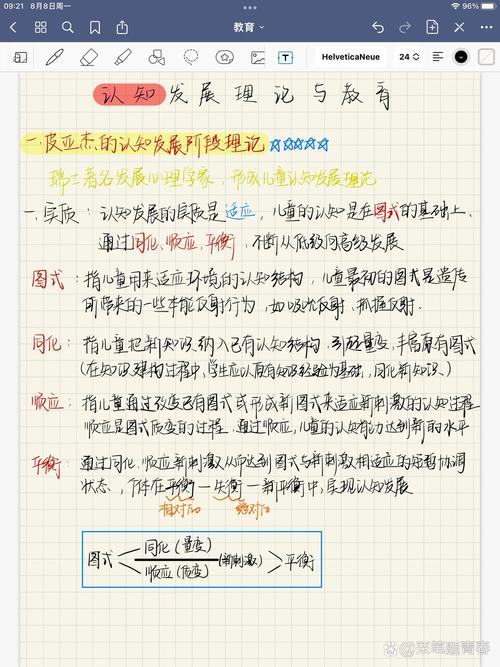 09:21 8月8日周一
96%
教育
HelveticaNeue 24
认知发展理论与教育
一.皮亚杰的认知发展阶段理论☆☆☆☆☆
瑞士著名发展心理学家，形成儿童认知发展理论
一.实质：认知发展的实质是适应，儿童的认知是在图式的基础上、
通过同化、顺应、平衡，不断从低级向高级发展
图式：指儿童用来适应环境的认知结构，儿童最初的图式是遗传
所带来的一些本能反射行为，如吸吮反射、抓握反射.
同化：指儿童把新知识纳入已有认知结构，引起量变，丰富原有图式
(在知识建构过程中，学生应以原有知识经验为基础，同化新知识.)
顺应：指儿童通过改变已有图式或形成新图式来适应新刺激的认知过程
顺应是图式质变的过程.通过顺应，儿童的认知有力达到新的水平
平衡：通过同化、顺应新刺激从而达到图式与新刺激相适应的短暂协调
状态，个体在平衡—失衡—新平衡中，实现认知发展
相对的 绝对的
同化(量变)
图式 (新刺激) 平衡
顺应(质变)